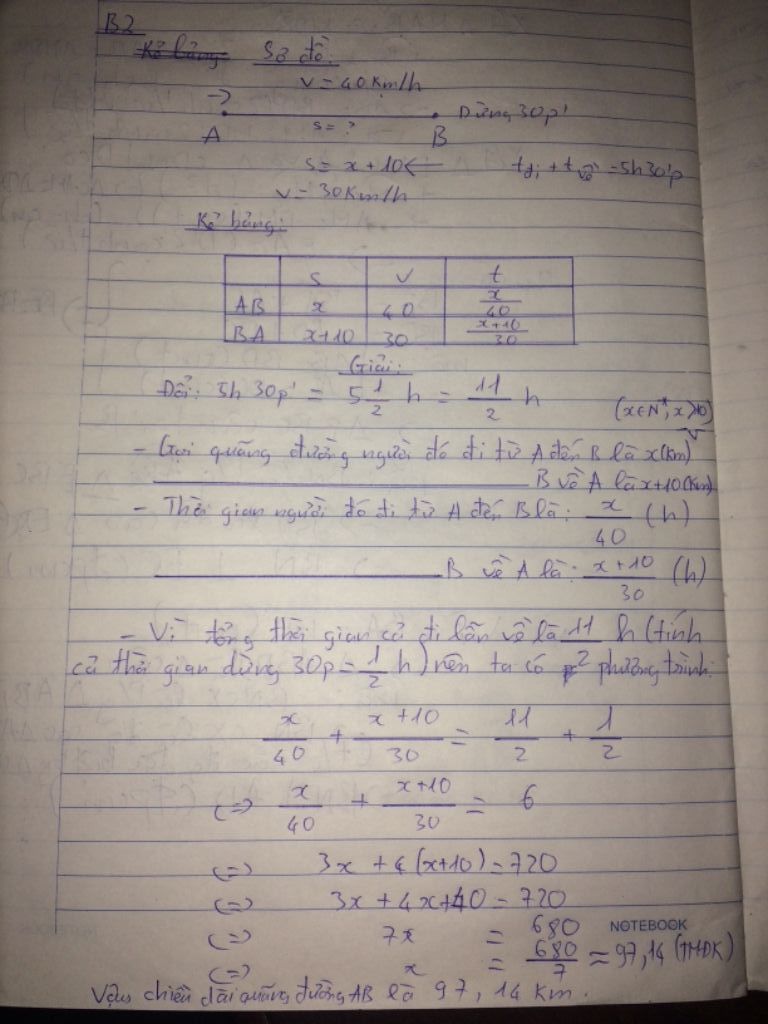 B2
Kẻ bảng Sơ đồ:
V = 40 km/h
A S = ? B Dừng 30p'
S = x + 10 ← t đi + t về = 5h30'p
V = 30 km/h
Kẻ bảng:
S V t
AB x 40 x/40
BA x+10 30 x+10/30
Giải:
Đổi: 5h 30p' = 5 1/2 h = 11/2 h
(x ∈ N*, x > 10)
- Gọi quãng đường người đó đi từ A đến B là x (km)
B về A là x+10 (km)
- Thời gian người đó đi từ A đến B là: x/40 (h)
B về A là: x+10/30 (h)
- Vì tổng thời gian cả đi lẫn về là 11/2 h (tính
cả thời gian dừng 30p = 1/2 h) nên ta có phương trình:
x/40 + x+10/30 = 11/2 + 1/2
<=> x/40 + x+10/30 = 6
<=> 3x + 4(x+10) = 720
<=> 3x + 4x + 40 = 720
<=> 7x = 680
NOTEBOOK
<=> x = 680/7 ≈ 97,14 (TMĐK)
Vậy chiều dài quãng đường AB là 97,14 km.